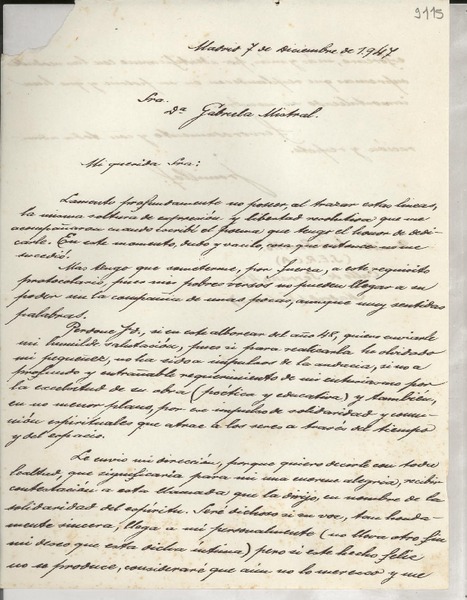 9115
Madrid 7 de Diciembre de 1.947
Sra.
Dª Gabriela Mistral.
Mi querida Sra:
Lamento profundamente no poseer, al trazar estas líneas,
la misma soltura de expresión y libertad resolutiva que me
acompañaron cuando escribí el poema que tengo el honor de dedi-
carle. En este momento, dudo y vacilo, cosa que entonces no me
sucedió.
Mas tengo que someterme, por fuerza, a este requisito
protocolario, pues mis pobres versos no pueden llegar a su
poder sin la compañía de unas pocas, aunque muy sentidas
palabras.
Perdone Vd., si en este alborear del año 48, quiero enviarle
mi humilde salutación, pues si para realizarla he olvidado
mi pequeñez, no ha sido a impulsos de la audacia, si no a
profundo y entrañable requerimiento de mi entusiasmo por
la excelsitud de su obra (poética y educativa) y también,
en no menor plano, por ese impulso de solidaridad y comu-
nión espirituales que atrae a los seres a través del tiempo
y del espacio.
Le envío mi dirección, porque quiero decirle con toda
lealtad, que significaría para mi una enorme alegría, recibir
contestación a esta llamada que la dirijo, en nombre de la
solidaridad del espíritu. Seré dichoso si su voz, tan honda-
mente sincera, llega a mi personalmente (no lleva otro fin
mi deseo que esta dicha íntima) pero si este hecho feliz
no se produce, consideraré que aún no lo merezco y me